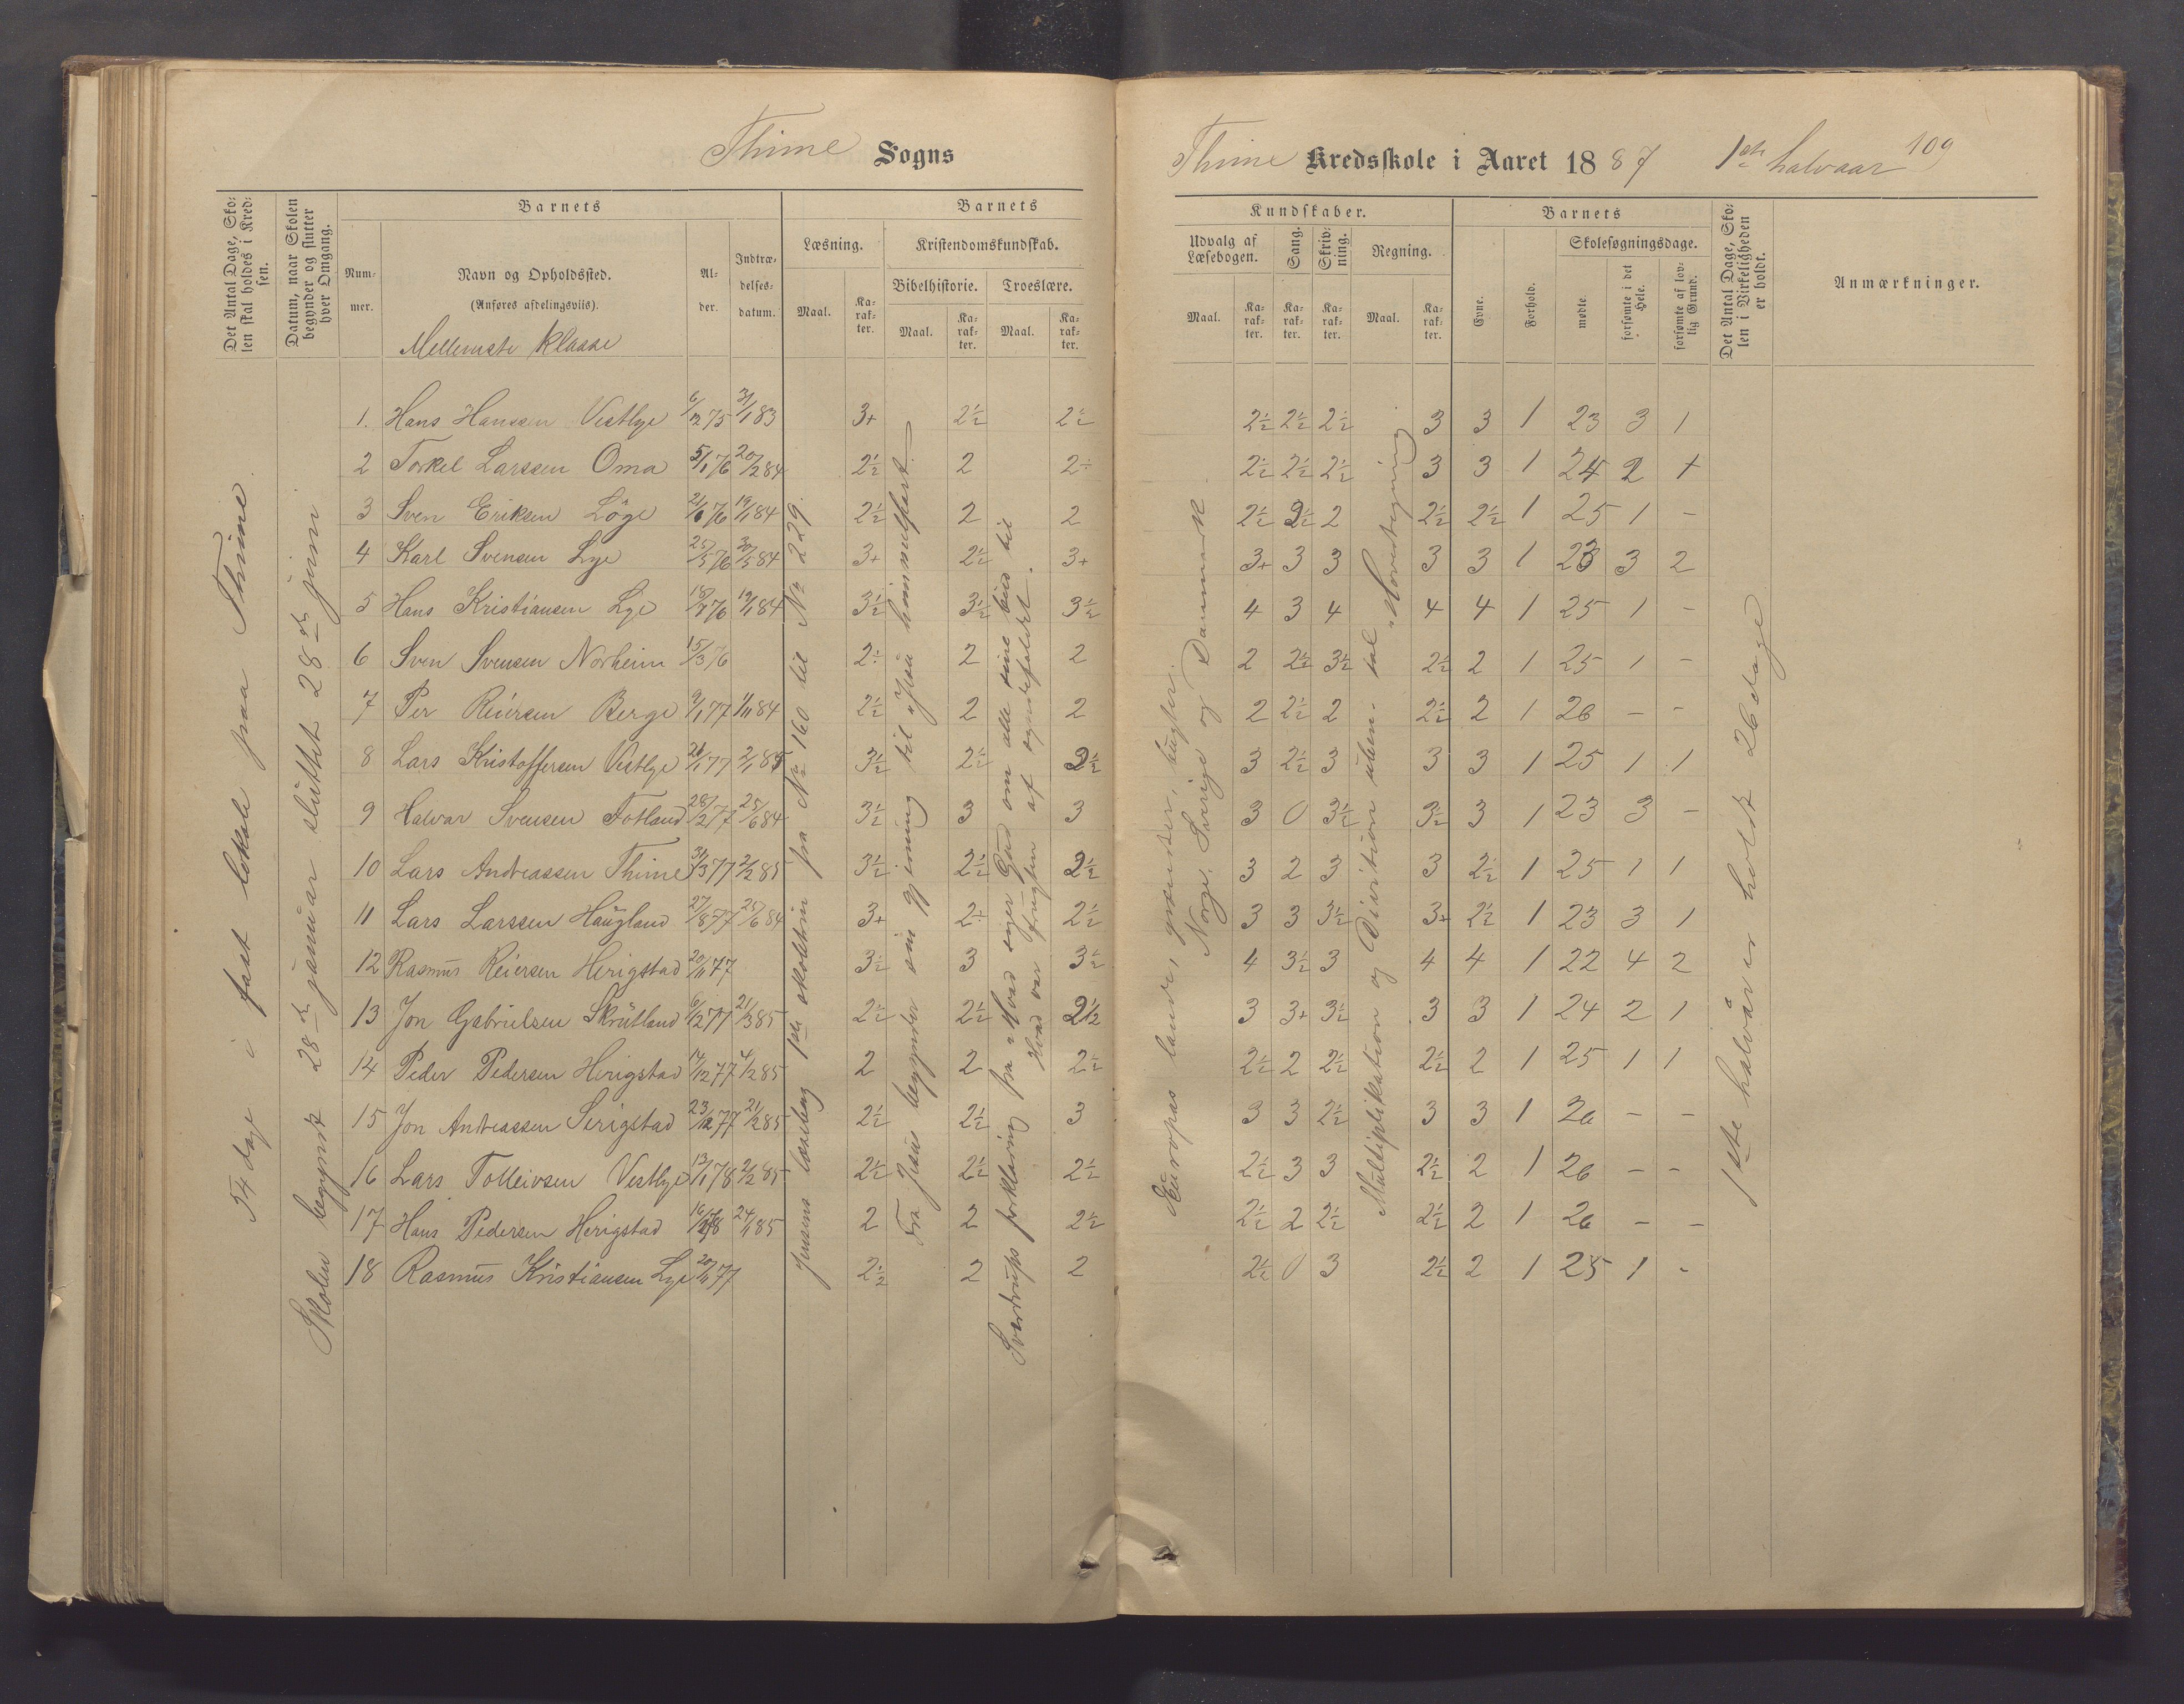 Thime Sogns
Thime Kredsskole i Aaret 1887 1ste halvaar 109
Det Antal Dage, Skolen skal holdes i Kredsen.
Datum, naar Skolen begynder og slutter hver Omgang.
Barnets
Nummer.
Navn og Opholdssted.
(Anføres afdelingsviis).
Mellemste Klasse
Alder.
Indtrædelsesdatum.
Barnets
Kundskaber.
Læsning.
Maal.
Karakter.
Kristendomskundskab.
Bibelhistorie.
Maal.
Karakter.
Troeslære.
Maal.
Karakter.
Udvalg af Læsebogen.
Maal.
Karakter.
Sang.
Karakter.
Skrivning.
Karakter.
Regning.
Maal.
Karakter.
Barnets
Evne.
Forhold.
Skolesøgningsdage.
mødte.
forsømte i det Hele.
forsømte af lovlig Grund.
Det Antal Dage, Skolen i Virkeligheden er holdt.
Anmærkninger.
54 dage i fast lokale paa Thime.
Skolen begyndt 28de januar sluttet 28de juni
Jensens læsebog 1ste skoletrin fra No 160 til No 229.
Fra Jesus begynder sin gjerning til Jesu himmelfart.
Sverdrups forklaring fra "Hvad siger Gud om alle sine bud" til
"Hvad var frugten af syndefaldet".
Europas lande, grændser, bugter.
Norge, Sverige og Danmark.
Multiplikation og Division uben. tal. "Hovedregning"
1ste halvår er holdt 26 dage
1. Hans Hanssen Vestlye 6/12 75 31/1 83 3+ 2½ 2½ 2½ 2½ 2½ 3 3 1 23 3 1
2 Torkel Larssen Oma 5/1 76 20/2 84 2½ 2 2÷ 2½ 2½ 2½ 3 3 1 24 2 1
3 Sven Eriksen Löge 2½ 2 2 2½ 2½ 2 2½ 2½ 1 25 1 -
4 Karl Svensen Lye 25/5 76 30/5 84 3+ 2½ 3+ 3+ 3 3 3 3 1 23 3 2
5 Hans Kristiansen Lye 19/1 84 3½ 3½ 3½ 4 3 4 4 4 1 25 1 -
6 Sven Svensen Norheim 15/3 76 2÷ 2 2 2 2½ 3½ 2½ 2 1 25 1 -
7 Per Reiersen Berge 9/1 77 1/11 84 2½ 2 2 2 2½ 2 2½ 2 1 26 - -
8 Lars Kristoffersen Vestlye 2/1 85 3½ 2½ 2½ 3 2½ 3 3 3 1 25 1 1
9 Halvar Svensen Fotland 28/2 77 25/6 84 3½ 3 3 3 0 3½ 3½ 3 1 23 3 -
10 Lars Andreassen Thime 31/3 77 2/2 85 3½ 2½ 2½ 3 2 3 3 2½ 1 25 1 1
11 Lars Larssen Haugland 27/8 77 25/6 84 3+ 2÷ 2½ 3 3 3½ 3+ 2½ 1 23 3 1
12 Rasmus Reiersen Herigstad 20/11 77 3½ 3 3½ 4 3½ 3 4 4 1 22 4 2
13 Jon Gabrielsen Skrutland 6/12 77 21/3 85 2½ 2½ 2½ 3 3+ 3½ 3 3 1 24 2 1
14 Peder Pedersen Herigstad 14/12 77 4/2 85 2 2 2½ 2½ 2 2½ 2½ 2 1 25 1 1
15 Jon Andreassen Serigstad 23/12 77 21/2 85 2½ 2½ 3 3 3 2½ 3 3 1 26 - -
16 Lars Tolleivsen Vestlye 13/1 78 2/2 85 2½ 2½ 2½ 2½ 3 3 2½ 2 1 26 - -
17 Hans Pedersen Herigstad 24/1 85 2 2 2½ 2½ 2 2½ 2½ 2 1 26 - -
18 Rasmus Kristiansen Lye 20/11 77 2½ 2 2 2½ 0 3 2½ 2 1 25 1 -